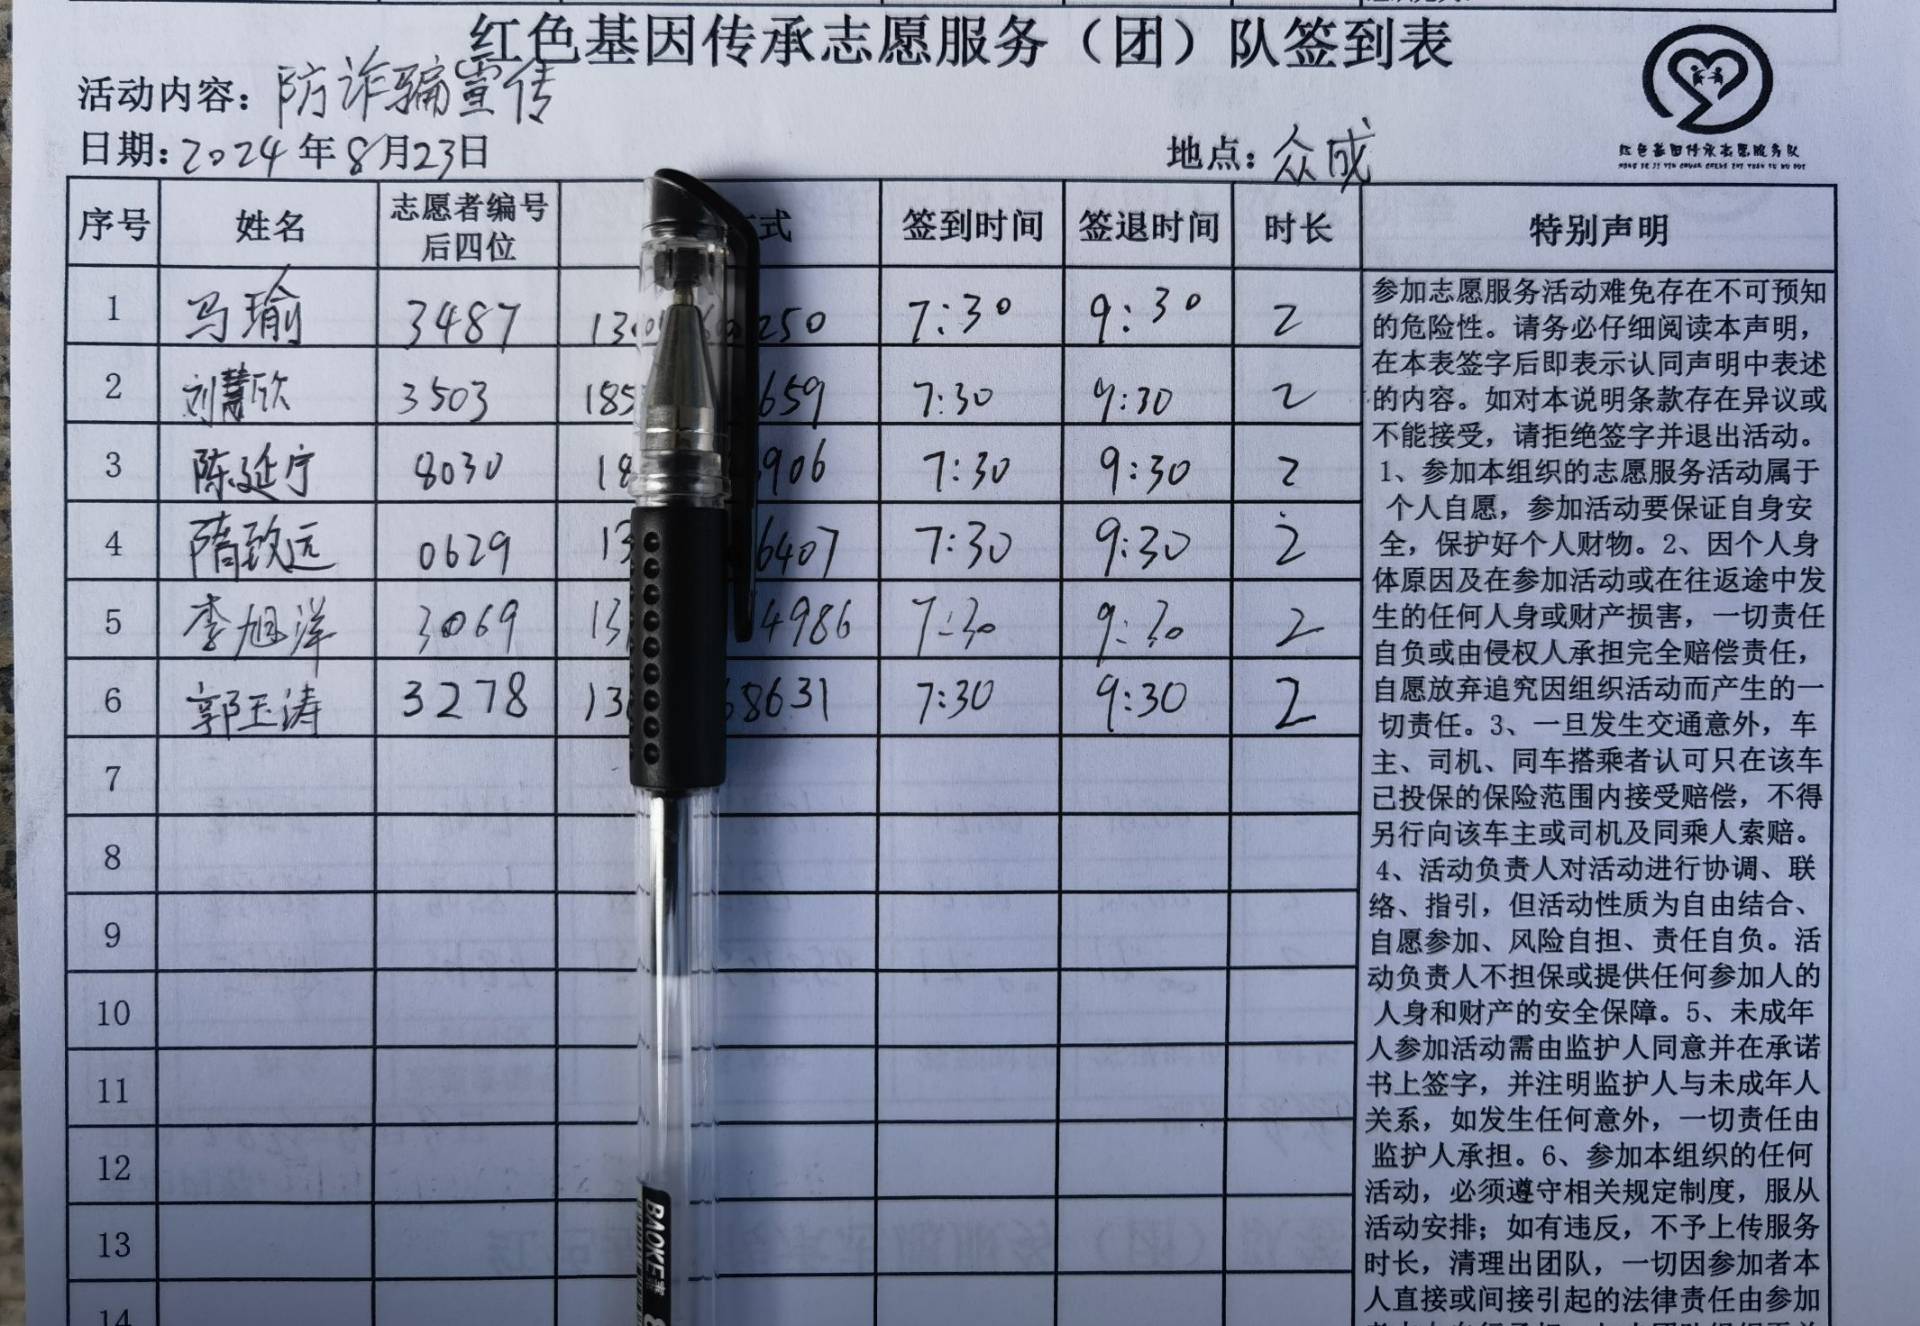 红色基因传承志愿服务（团）队签到表
活动内容：防诈骗宣传
日期：2024年8月23日 地点：众成
红色基因传承志愿服务队
序号 姓名 志愿者编号后四位 式 签到时间 签退时间 时长 特别声明
1 马瑜 3487 250 7:30 9:30 2
2 刘慧欣 3503 185 659 7:30 9:30 2
3 陈延宁 8030 18 906 7:30 9:30 2
4 隋致远 0629 13 6407 7:30 9:30 2
5 李旭洋 3069 13 4986 7:30 9:30 2
6 郭玉涛 3278 13 8631 7:30 9:30 2
7
8
9
10
11
12
13
14
参加志愿服务活动难免存在不可预知
的危险性。请务必仔细阅读本声明，
在本表签字后即表示认同声明中表述
的内容。如对本说明条款存在异议或
不能接受，请拒绝签字并退出活动。
1、参加本组织的志愿服务活动属于
个人自愿，参加活动要保证自身安
全，保护好个人财物。2、因个人身
体原因及在参加活动或在往返途中发
生的任何人身或财产损害，一切责任
自负或由侵权人承担完全赔偿责任，
自愿放弃追究因组织活动而产生的一
切责任。3、一旦发生交通意外，车
主、司机、同车搭乘者认可只在该车
已投保的保险范围内接受赔偿，不得
另行向该车主或司机及同乘人索赔。
4、活动负责人对活动进行协调、联
络、指引，但活动性质为自由结合、
自愿参加、风险自担、责任自负。活
动负责人不担保或提供任何参加人的
人身和财产的安全保障。5、未成年
人参加活动需由监护人同意并在承诺
书上签字，并注明监护人与未成年人
关系，如发生任何意外，一切责任由
监护人承担。6、参加本组织的任何
活动，必须遵守相关规定制度，服从
活动安排；如有违反，不予上传服务
时长，清理出团队，一切因参加者本
人直接或间接引起的法律责任由参加
BAOKE